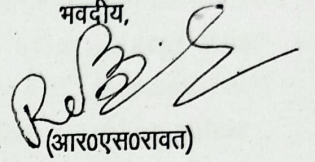 भवदीय,
(आर0एस0रावत)